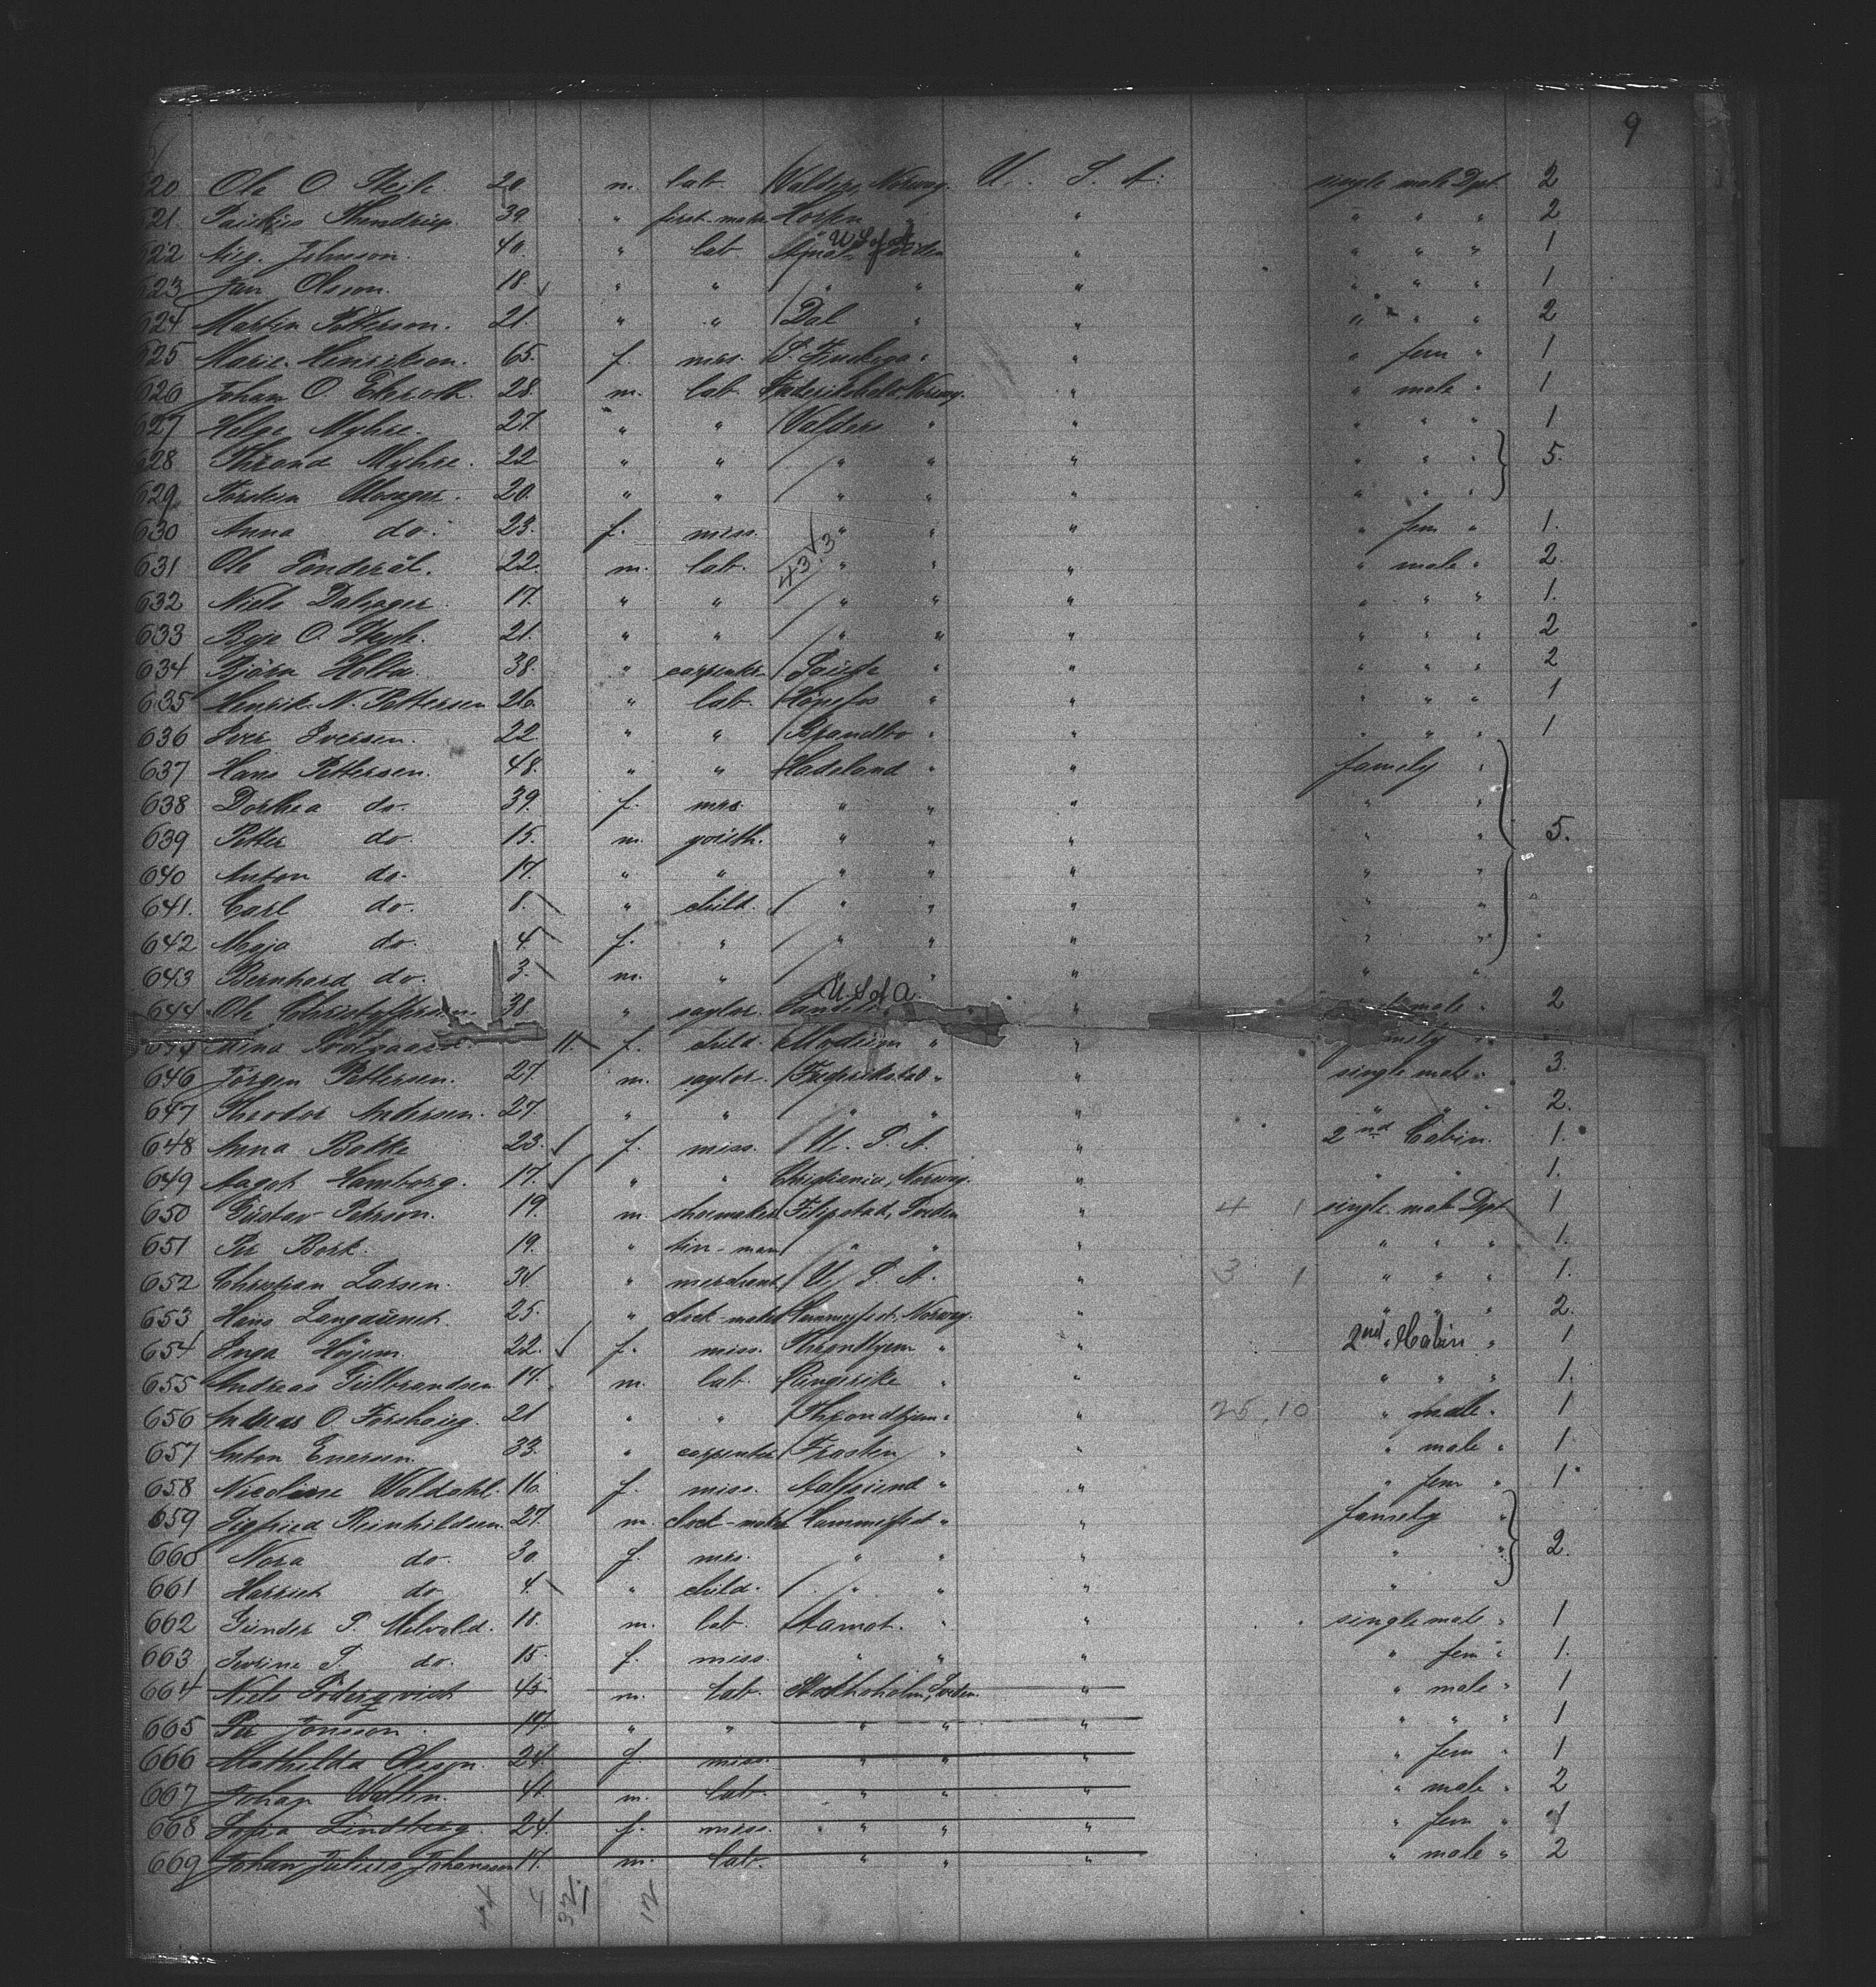 9
620 Ole O. 20 m. lab. Valders, Norway. U. S. A. single male Dpt. 2
621. 39. " first-mate Horten " " " " " 2
622 Aug. Johnson. 40. " lab. U S of A " " " " 1
623 Jan Olsson. 18. " " " " " " " " 1
624 Martin Petterson. 21. " " Dal " " " " " 2
625 Marie Henrikson. 65. f. mrs. " " " fem " 1
626 Johan O. 28. m. lab. Frederikshald, Norway. " " male " 1
627 Helge Myhre. 27. " " Valders " " " " " 1
628 Thrond Myhre. 22 " " " " " " " " 5.
629 Torstein 20. " " " " " " " "
630 Anna do. 23. f. miss. " " " " fem " 1.
631 Ole 22. m. lab. " " " " male " 2.
632 Niels 17. " " " " " " " " 1.
633 O. 21. " " " " " " " " 2
634 Björn Holta 38. " carpenter " " " " " 2
635 Henrik N. Pettersen 26. " lab. Hönefos " " " " " 1
636 Iver Iversen. 22. " " Brandbo " " " " " 1
637 Hans Pettersen. 48. " " Hadeland " " famely "
638 Dorthea do. 39. f. mrs. " " " " "
639 Petter do. 15. m. youth. " " " " " 5.
640 Anton do. 17. " " " " " " "
641. Carl do. 8. " child. " " " " "
642 Maja do. 4. f. " " " " " "
643 Bernhard do. 3. m. " " " " " "
644 Ole Christoffersen. 38 " saylor. U. S of A. " male " 2
Mina 11. f. child. Modum " " famely "
646 Jörgen Pettersen. 27. m. saylor. Frederikstad " " single male " 3.
647 Theodor Andersen. 27. " " " " " " " 2.
648 Anna Bakke 23. f. miss. U. S. A. " 2nd Cabin. 1.
649 Aagot Hamborg. 17. " " Christiania, Norway. " " " 1.
650 Gustav Peterson. 19. m. shoemaker Filipstad, Sveden " 4 1 single male Dpt 1
651 Per Bork. 19. " tin-man " " " " " " 1.
652 Christian Larsen. 34. " merchant U. S. A. " 3 1 " " " 1.
653 Hans 25. " clock-maker Hammerfest, Norway. " " " " 2.
654 Inga Höijem. 22. f. miss. Throndhjem " " 2nd. Cabin " 1
655 Andreas Gulbrandsen 17. m. lab. Ringerike " " " " " 1.
656 Andreas O. 21 " " Throndhjem " " 25, 10 " male. 1
657 Anton Enersen. 33. " carpenter Frosten " " " male " 1
658 Nicoline Woldahl. 16. f. miss. Aalesund " " fem " 1
659 Sigfried Reinholdsen. 27. m. clock-maker Hammerfest " " famely "
660 Nora do. 30. f. mrs. " " " " " 2.
661 do. 4. " child. " " " "
662 Gunder P. Melvold. 18. m. lab. Aamot. " " single male " 1
663 P. do. 15. f. miss. " " " fem " 1.
664 Niels Söderqvist 45 m. lab. Stockholm, Sveden. " " male " 1
665 Per Jonsson. 19. " " " " " " " " 1
666 Mathilda Olsson. 24. f. miss. " " " " fem " 1
667 Johan Wallin. 41. m. lab. " " " " male " 2
668 Sofia Lindberg. 24. f. miss. " " " " fem "
669 Johan Julius Johansson 17. m. lab. " " " " male " 2